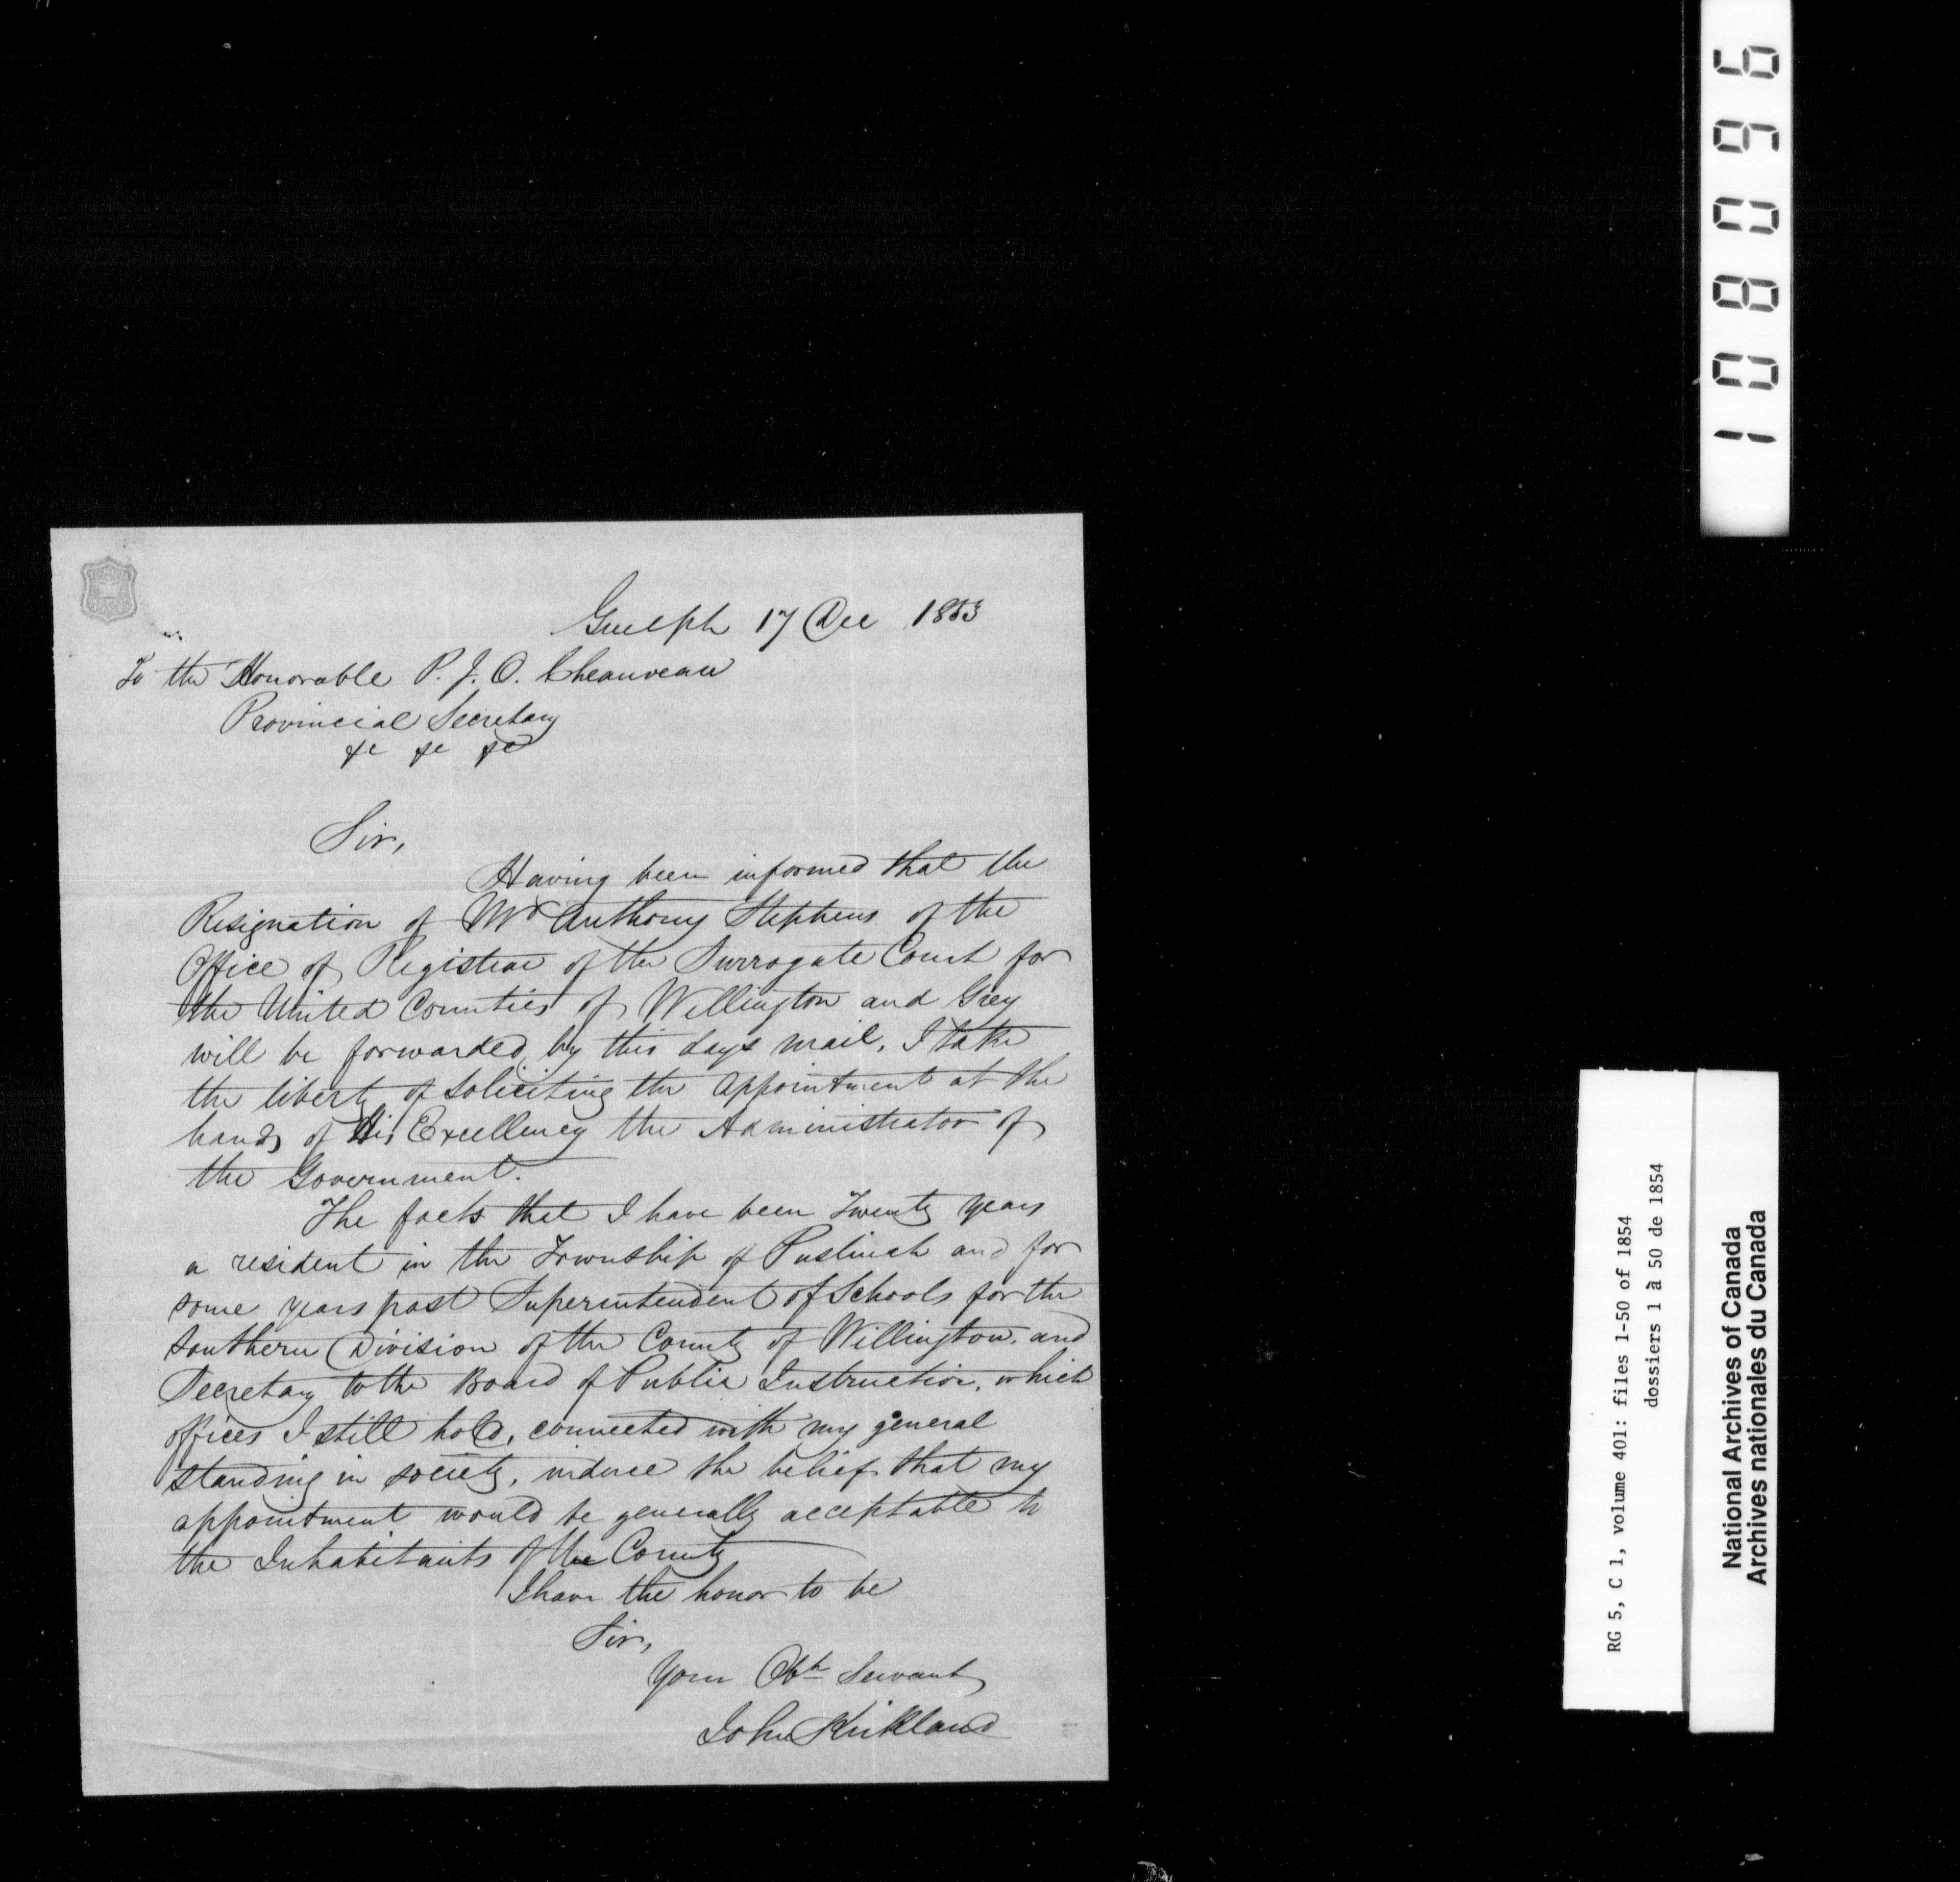 Guelph 17 Dec 1853
To the Honorable P. J. O. Cheauveau
Provincial Secretary
&c &c &c
Sir,
Having been informed that the
Resignation of Mr Anthony Stephens of the
Office of Registrar of the Surrogate Court for
the United Counties of Wellington and Grey
will be forwarded by this days mail, I take
the liberty of soliciting the appointment at the
hands of His Excellency the Administrator of
the Government.
The facts that I have been Twenty years
a resident in the Township of Puslinch and for
some years past Superintendent of Schools for the
Southern Division of the County of Wellington, and
Secretary to the Board of Public Instruction, which
offices I still hold, connected with my general
standing in society, induce the belief that my
appointment would be generally acceptable to
the Inhabitants of the County
I have the honor to be
Sir,
Your Obt Servant
John Kirkland
108096
RG 5, C 1, volume 401: files 1-50 of 1854
dossiers 1 à 50 de 1854
National Archives of Canada
Archives nationales du Canada